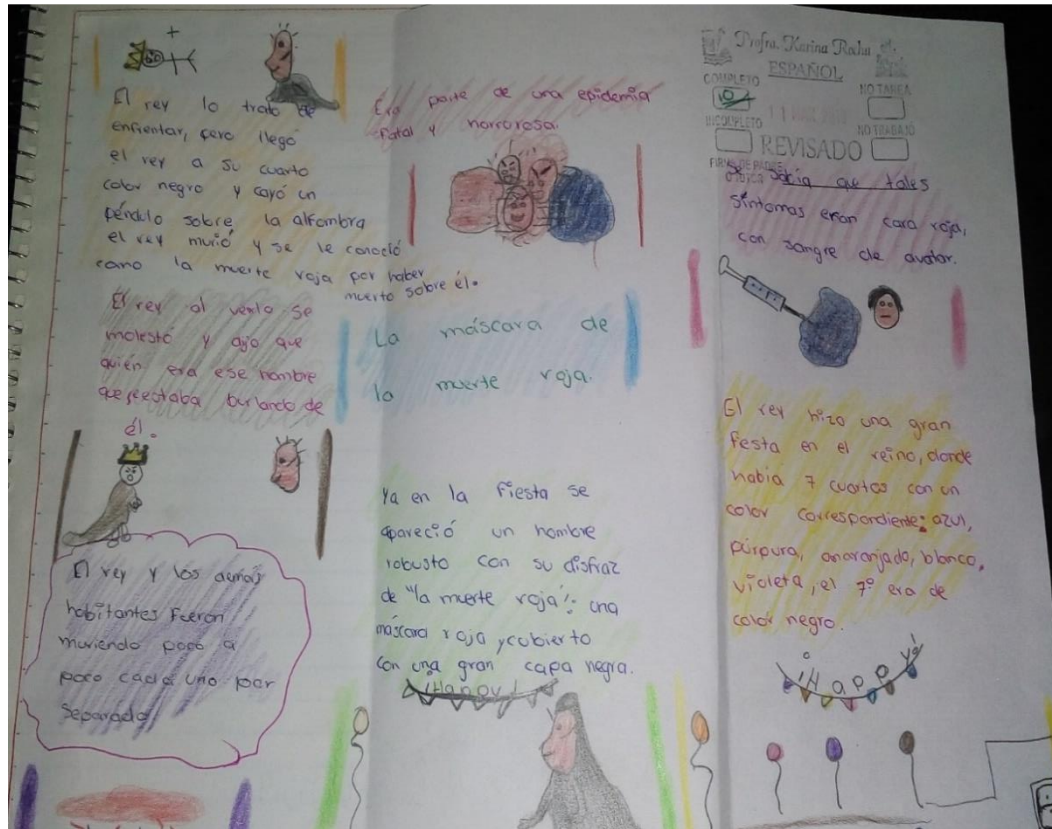 El rey lo trató de
enfrentar, pero llegó
el rey a su cuarto
color negro y cayó un
péndulo sobre la alfombra
el rey murió y se le conoció
como la muerte roja por haber
muerto sobre él.
El rey al verlo se
molestó y dijo que
quién era ese hombre
que se estaba burlando de
él.
El rey y los demás
habitantes fueron
muriendo poco a
poco cada uno por
separado
Era parte de una epidemia
fatal y horrorosa.
La máscara de
la muerte roja.
Ya en la fiesta se
apareció un hombre
robusto con su disfraz
de "la muerte roja": una
máscara roja y cubierto
con una gran capa negra.
¡Happy!
Profra. Karina Rocha
ESPAÑOL
COMPLETO
NO TAREA
10
INCOMPLETO
NO TRABAJÓ
REVISADO
FIRMA DE PADRE
sabía que tales
síntomas eran cara roja,
con sangre de avatar.
El rey hizo una gran
fiesta en el reino, donde
había 7 cuartos con un
color correspondiente: azul,
púrpura, anaranjado, blanco,
violeta, el 7º era de
color negro.
¡Happy!